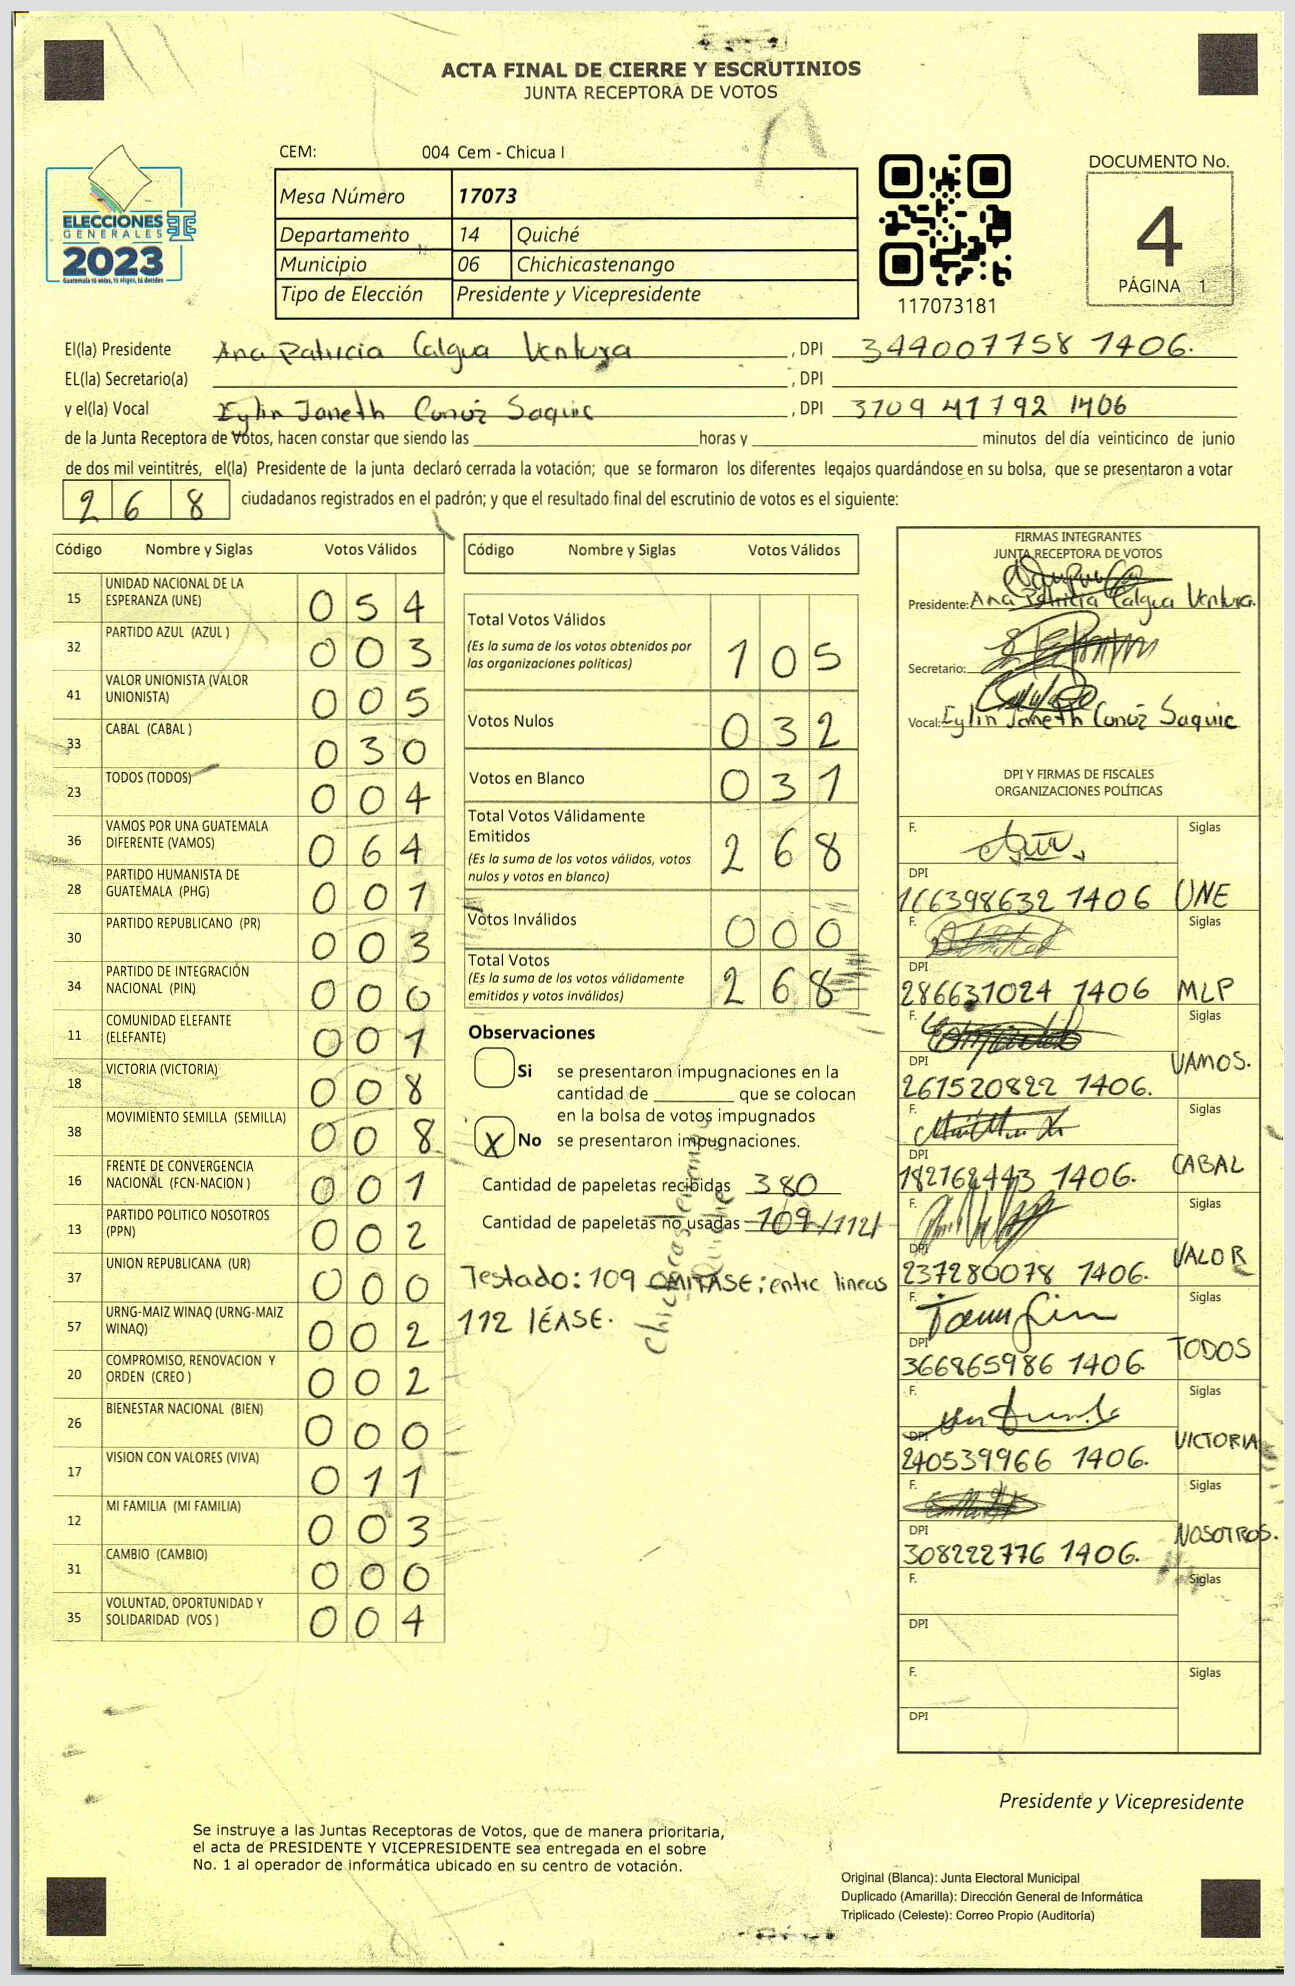 ACTA FINAL DE CIERRE Y ESCRUTINIOS
JUNTA RECEPTORA DE VOTOS
CEM: 004 Cem - Chicua I
Mesa Número 17073
Departamento 14 Quiché
Municipio 06 Chichicastenango
Tipo de Elección Presidente y Vicepresidente
ELECCIONES
GENERALES
2023
Guatemala tú votas, tú eliges, tú decides
117073181
DOCUMENTO No.
4
PÁGINA 1
El(la) Presidente Ana Patricia Calgua Ventura, DPI 344007758 1406.
EL(la) Secretario(a) , DPI
y el(la) Vocal Eylin Janeth Conóz Saquic, DPI 3709 41792 1406
de la Junta Receptora de Votos, hacen constar que siendo las horas y minutos del día veinticinco de junio
de dos mil veintitrés, el(la) Presidente de la junta declaró cerrada la votación; que se formaron los diferentes legajos guardándose en su bolsa, que se presentaron a votar
268 ciudadanos registrados en el padrón; y que el resultado final del escrutinio de votos es el siguiente:
Código Nombre y Siglas Votos Válidos
15 UNIDAD NACIONAL DE LA ESPERANZA (UNE) 054
32 PARTIDO AZUL (AZUL ) 003
41 VALOR UNIONISTA (VALOR UNIONISTA) 005
33 CABAL (CABAL ) 030
23 TODOS (TODOS) 004
36 VAMOS POR UNA GUATEMALA DIFERENTE (VAMOS) 064
28 PARTIDO HUMANISTA DE GUATEMALA (PHG) 001
30 PARTIDO REPUBLICANO (PR) 003
34 PARTIDO DE INTEGRACIÓN NACIONAL (PIN) 000
11 COMUNIDAD ELEFANTE (ELEFANTE) 001
18 VICTORIA (VICTORIA) 008
38 MOVIMIENTO SEMILLA (SEMILLA) 008
16 FRENTE DE CONVERGENCIA NACIONAL (FCN-NACION ) 001
13 PARTIDO POLITICO NOSOTROS (PPN) 002
37 UNION REPUBLICANA (UR) 000
57 URNG-MAIZ WINAQ (URNG-MAIZ WINAQ) 002
20 COMPROMISO, RENOVACION Y ORDEN (CREO ) 002
26 BIENESTAR NACIONAL (BIEN) 000
17 VISION CON VALORES (VIVA) 011
12 MI FAMILIA (MI FAMILIA) 003
31 CAMBIO (CAMBIO) 000
35 VOLUNTAD, OPORTUNIDAD Y SOLIDARIDAD (VOS ) 004
Código Nombre y Siglas Votos Válidos
Total Votos Válidos 105
(Es la suma de los votos obtenidos por
las organizaciones políticas)
Votos Nulos 032
Votos en Blanco 031
Total Votos Válidamente
Emitidos 268
(Es la suma de los votos válidos, votos
nulos y votos en blanco)
Votos Inválidos 000
Total Votos 268
(Es la suma de los votos válidamente
emitidos y votos inválidos)
Observaciones
Si se presentaron impugnaciones en la
cantidad de que se colocan
en la bolsa de votos impugnados
X No se presentaron impugnaciones.
Cantidad de papeletas recibidas 380
Cantidad de papeletas no usadas 109 /112/
Testado: 109 OMITASE; entre lineas
112 LÉASE.
Chichicastenango
Quiché
FIRMAS INTEGRANTES
JUNTA RECEPTORA DE VOTOS
Presidente: Ana Patricia Calgua Ventura.
Secretario:
Vocal: Eylin Janeth Conóz Saquic
DPI Y FIRMAS DE FISCALES
ORGANIZACIONES POLÍTICAS
F. Siglas
DPI
166398632 1406 UNE
F. Siglas
DPI
286631024 1406 MLP
F. Siglas
DPI
261520822 1406. VAMOS.
F. Siglas
DPI
182162443 1406. CABAL
F. Siglas
DPI
237280078 1406. VALOR
F. Siglas
DPI
366865986 1406. TODOS
F. Siglas
DPI
240539966 1406. VICTORIA
F. Siglas
DPI
308222776 1406. NOSOTROS.
F. Siglas
DPI
F. Siglas
DPI
Presidente y Vicepresidente
Se instruye a las Juntas Receptoras de Votos, que de manera prioritaria,
el acta de PRESIDENTE Y VICEPRESIDENTE sea entregada en el sobre
No. 1 al operador de informática ubicado en su centro de votación.
Original (Blanca): Junta Electoral Municipal
Duplicado (Amarilla): Dirección General de Informática
Triplicado (Celeste): Correo Propio (Auditoría)